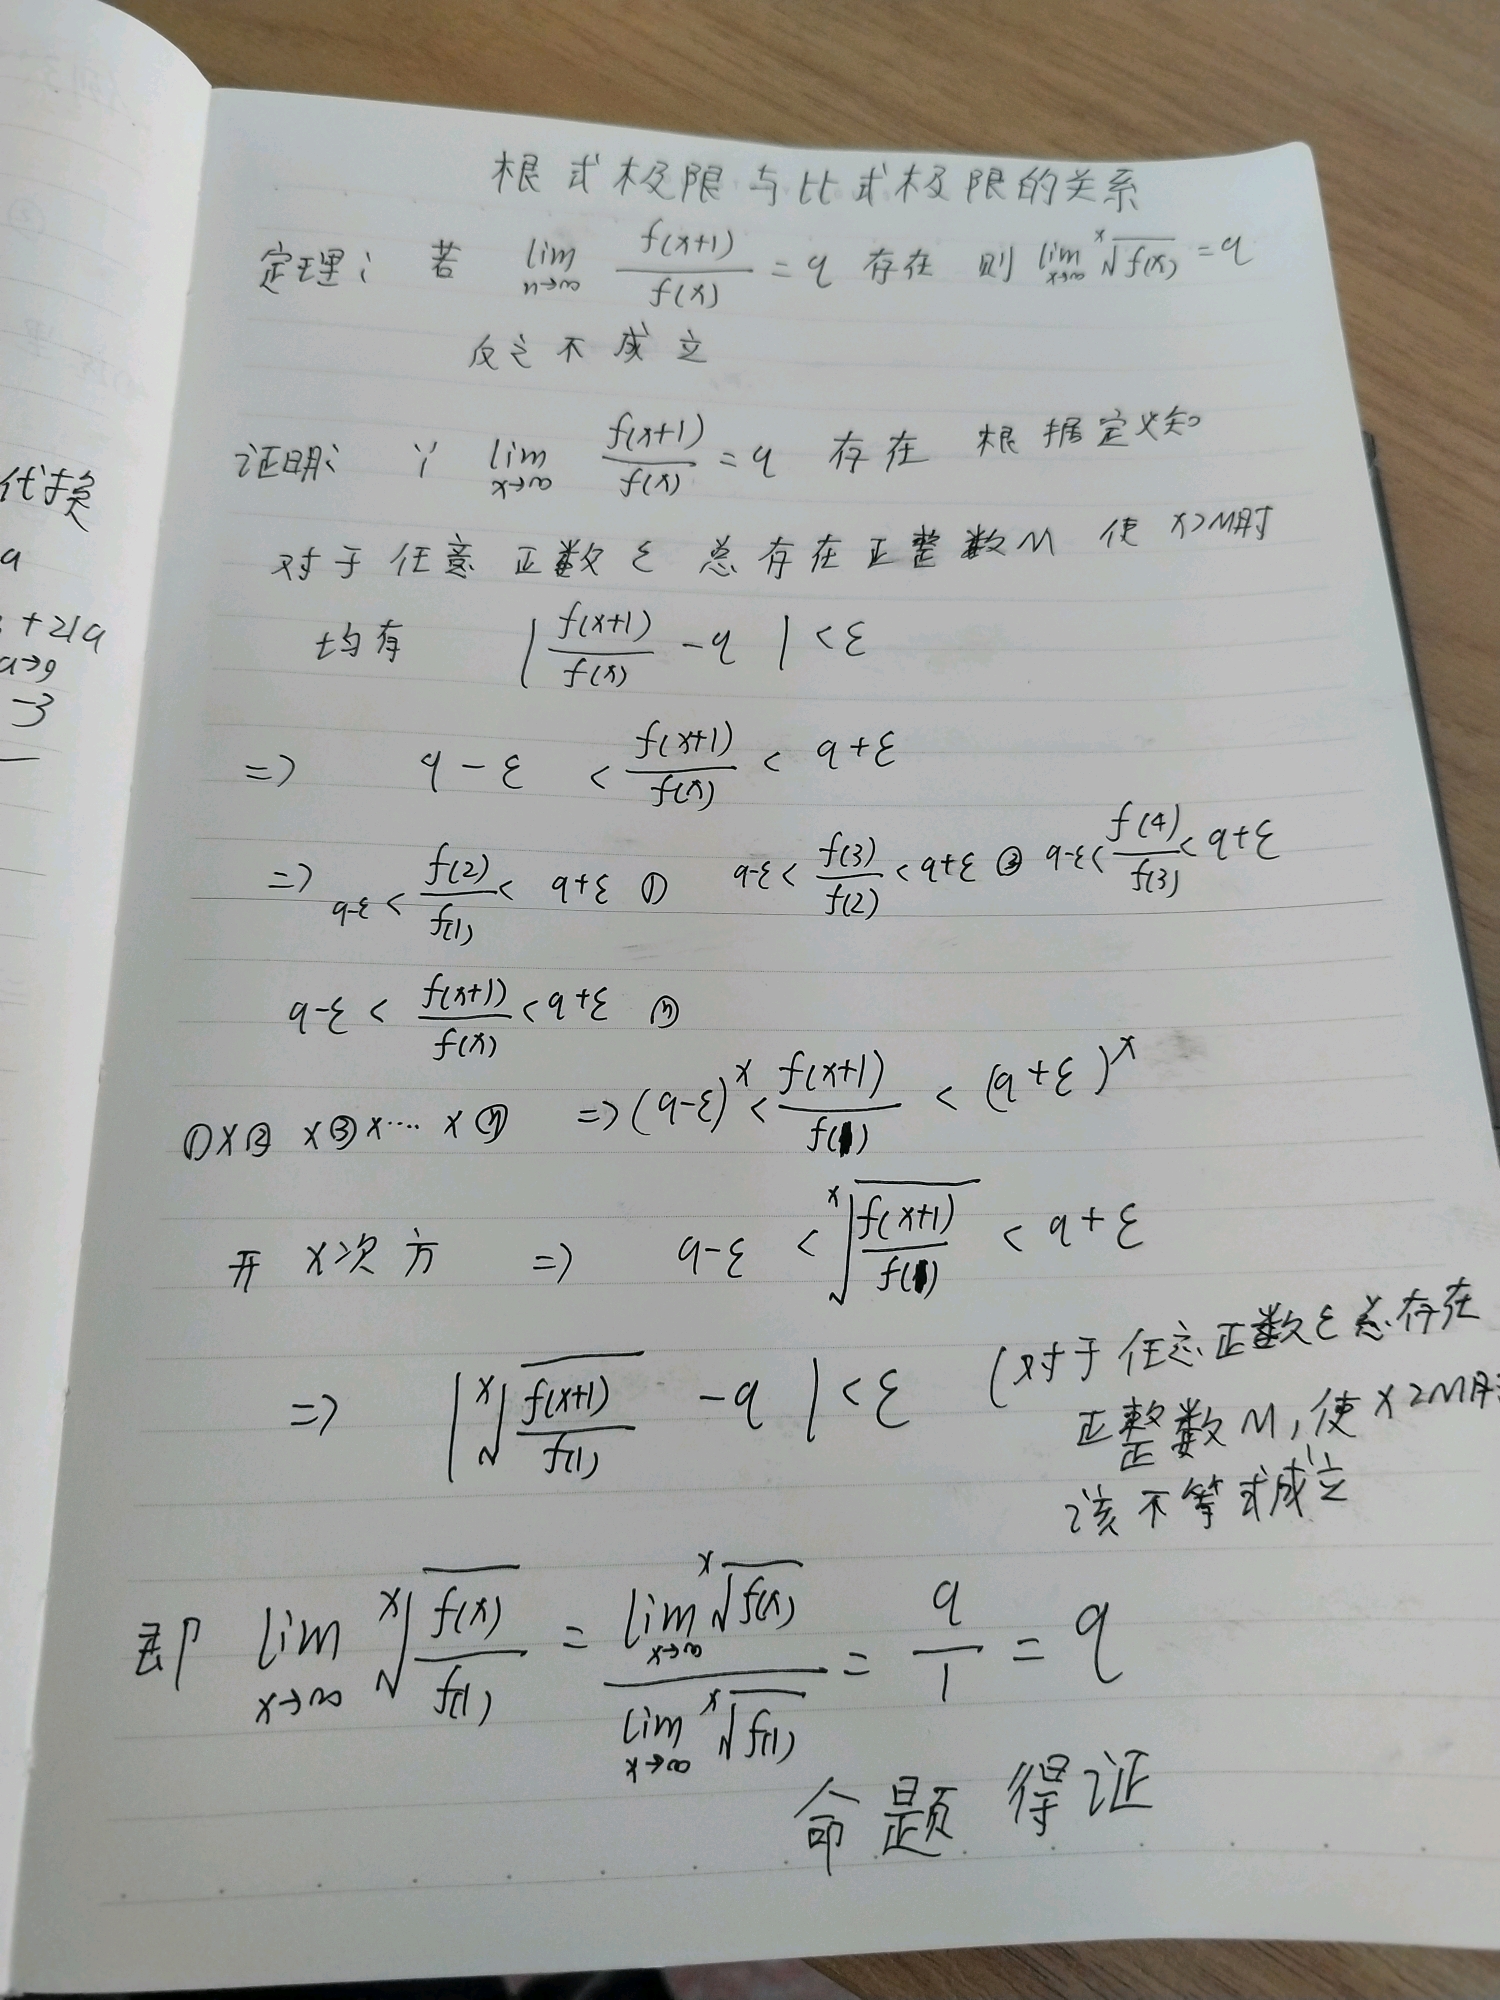 根式极限与比式极限的关系
定理: 若 lim n→∞ f(x+1)/f(x) = q 存在 则 lim x→∞ ˣ√f(x) = q
反之不成立
证明: ∵ lim x→∞ f(x+1)/f(x) = q 存在 根据定义知
对于任意正数ε 总存在正整数M 使 x>M时
均有 |f(x+1)/f(x) - q| < ε
=> q-ε < f(x+1)/f(x) < q+ε
=> q-ε < f(2)/f(1) < q+ε ① q-ε < f(3)/f(2) < q+ε ② q-ε < f(4)/f(3) < q+ε
q-ε < f(x+1)/f(x) < q+ε ⓝ
①×②×③×····×ⓝ => (q-ε)ˣ < f(x+1)/f(1) < (q+ε)ˣ
开x次方 => q-ε < ˣ√(f(x+1)/f(1)) < q+ε
=> |ˣ√(f(x+1)/f(1)) - q| < ε (对于任意正数ε总存在
正整数M,使x>M时
该不等式成立
即 lim x→∞ ˣ√(f(x)/f(1)) = lim x→∞ ˣ√f(x) / lim x→∞ ˣ√f(1) = q/1 = q
命题得证
代换
a
+21a
a→9
-3